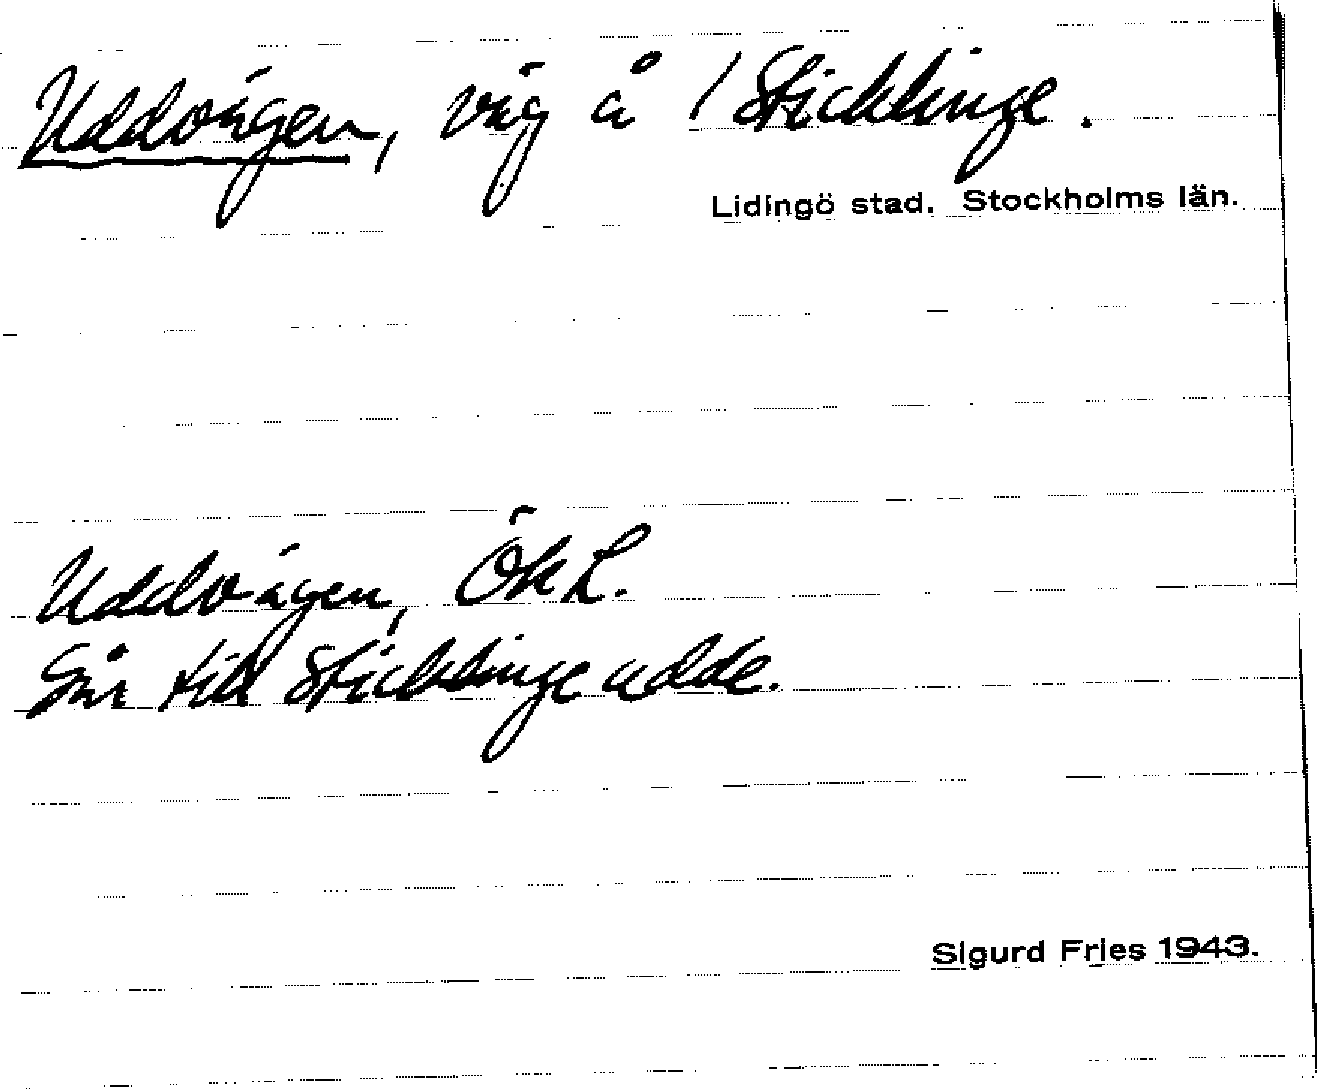 Uddvägen, väg å / Sticklinge.
Lidingö stad. Stockholms län.
Uddvägen, ÖhL.
Går till Sticklinge udde.
Sigurd Fries 1943.